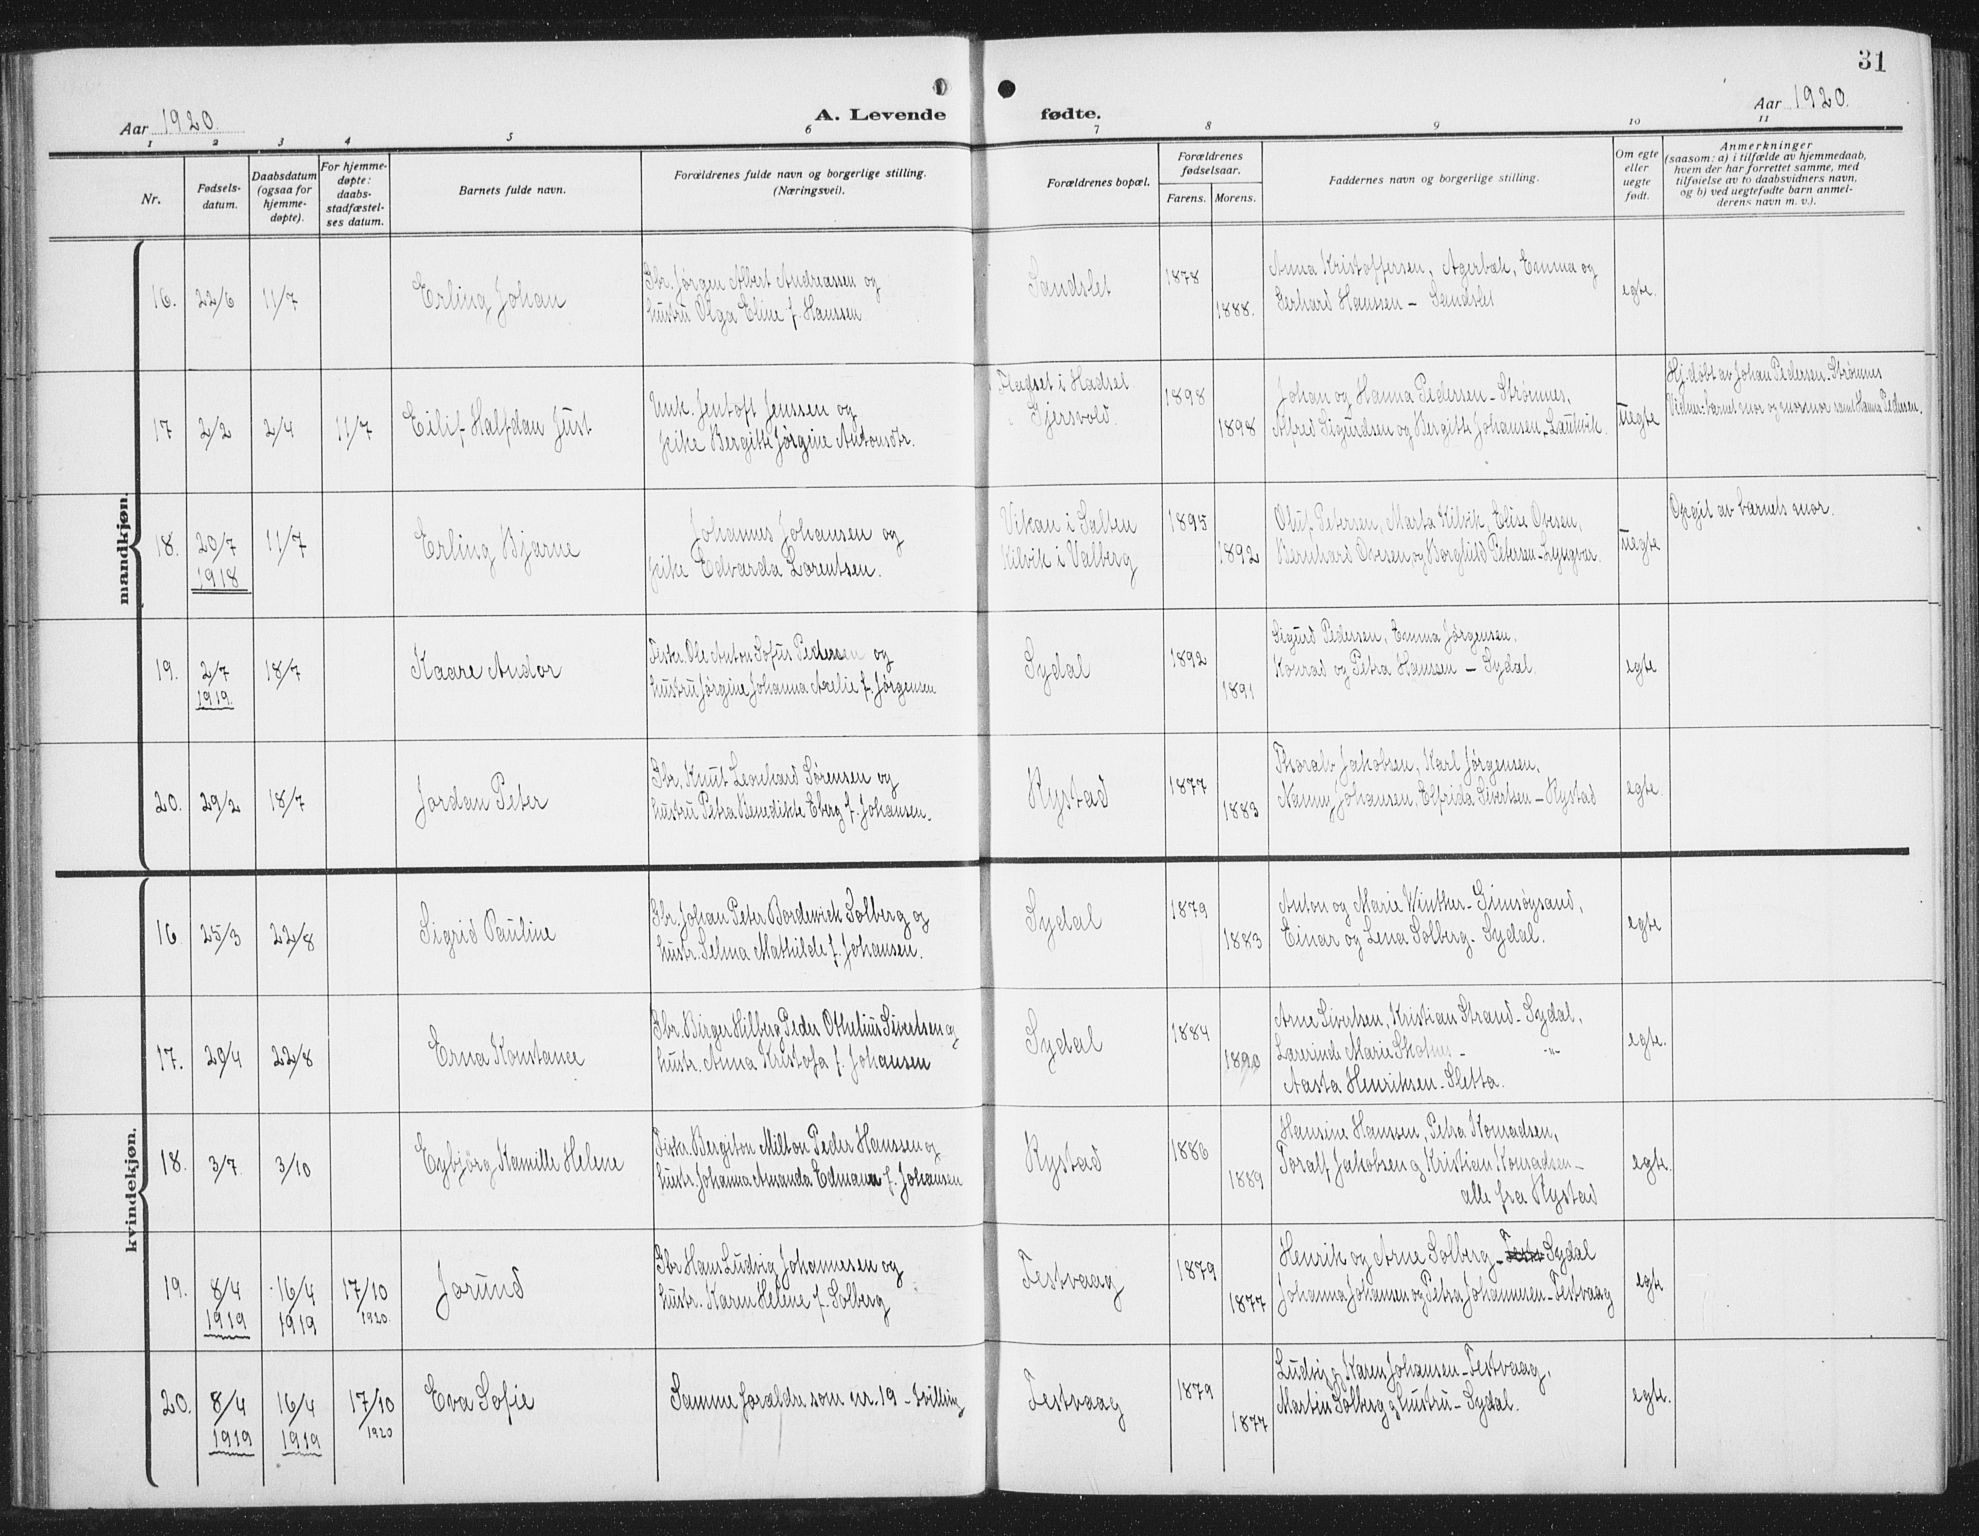 31
Aar 1920.
A. Levende fødte.
Aar 1920.
1 2 3 4 5 6 7 8 9 10 11
Nr.
Fødsels-
datum.
Daabsdatum
(ogsaa for
hjemme-
døpte).
For hjemme-
døpte:
daabs-
stadfæstel-
ses datum.
Barnets fulde navn.
Forældrenes fulde navn og borgerlige stilling.
(Næringsvei).
Forældrenes bopæl.
Forældrenes
fødselsaar.
Farens. Morens.
Faddernes navn og borgerlige stilling.
Om egte
eller
uegte
født.
Anmerkninger
(saasom: a) i tilfælde av hjemmedaab,
hvem der har forrettet samme, med
tilføielse av to daabsvidners navn,
og b) ved uegtefødte barn anmel-
derens navn m. v.).
mandkjøn.
16. 22/6 11/7 Erling Johan
Gbr. Jørgen Albert Andreassen og
hustru Olga Eline f. Hanssen
Sandslet 1878 1888.
Anna Kristoffersen, Agerbæk, Emma og
Gerhard Hanssen – Sandslet
egte.
17 2/2 2/4 11/7 Eilif Halfdan Just
Unk. Jentoft Jenssen og
pike Bergitte Jørgine Antonsdtr.
Fladset i Hadsel
Gjersvold. 1898 1898
Johan og Hanna Pedersen – Strømnes,
Alfred Sigurdsen og Bergitte Johansen – Laukvik.
uegte
Hj.døbt av Johan Pedersen – Strømnes
Vidner: barnets mor og mormor samt Hanna Pedersen.
18. 20/7 11/7 Erling Bjarne
1918
Johannes Johansen og
pike Edvarda Lorentsen.
Vikan i Salten
Kilvik i Valberg 1895 1892
Oluf Petersen, Marta Kilvik, Elise Ovesen,
Bernhard Ovesen, og Borghild Petersen – Lyngvær.
uegte
Opgit av barnets mor.
19. 2/7 18/7 Kaare Andor
1919.
Fisker. Ole Anton Sofus Pedersen og
hustru Jørgine Johanna Arelie f. Jørgensen
Sydal 1892 1891
Sigurd Pedersen, Emma Jørgensen,
Konrad og Petra Hanssen – Sydal.
egte
20. 29/2 18/7 Jordan Peter
Gbr. Knut Lenhard Sørensen og
hustru Petra Benedikte Eberg f. Johansen.
Rystad 1877 1883
Thoralv Jakobsen, Karl Jørgensen,
Nanny Johansen, Elfrida Sivertsen – Rystad
egte.
kvindekjøn.
16 25/3 22/8 Sigrid Pauline
Gbr. Johan Peter Bordewick Solberg og
hustr. Selma Mathilde f. Johansen.
Sydal 1879 1883
Anton og Marie Winther – Gimsøysand,
Einar og Lena Solberg – Sydal.
egte
17. 20/4 22/8 Erna Konstance
Gbr. Birger Hilberg Peder Othelius Sivertsen og
hustr. Anna Kristofa f. Johansen
Sydal 1884 1890
Arne Sivertsen, Kristian Strand – Sydal,
Lærerinde Marie – " –
Aasta Henriksen – Sletta.
egte.
18. 3/7. 3/10 Eybjørg Kamille Helene
Fisker. Bergiton Milton Peder Hanssen og
hustr. Johanna Amanda Edmann f. Johansen
Rystad 1886 1889
Hansine Hanssen, Petra Konradsen,
Toralf Jakobsen og Kristian Konradsen –
alle fra Rystad
egte.
19. 8/4 16/4 17/10 Jorund
1919 1919 1920.
Gbr Hans Ludvig Johannesen og
hustr. Karen Helene f. Solberg
Festvaag 1879 1877
Henrik og Arne Solberg – Sydal
Johanna Johansen og Petra Johannesen – Festvaag
egte
20. 8/4 16/4 17/10 Eva Sofie
1919 1919 1920
Samme forældre som nr. 19 – Tvilling
Festvaag 1879 1877
Ludvig og Karen Johansen – Festvaag,
Martin Solberg og hustru – Sydal.
egte.